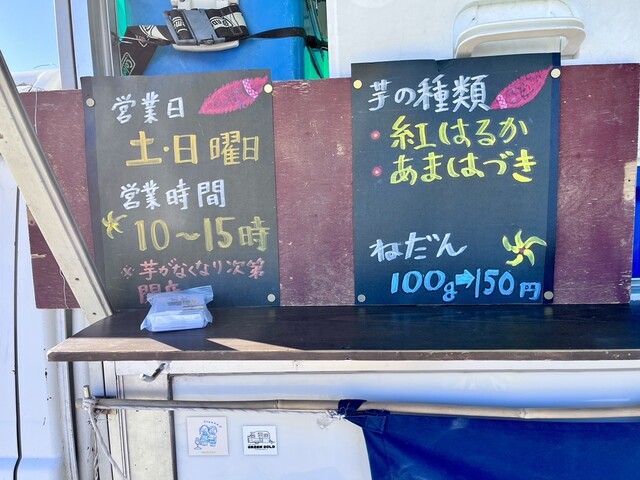 営業日
土・日曜日
営業時間
10〜15時
※芋がなくなり次第
芋の種類
・紅はるか
・あまはづき
ねだん
100g→150円